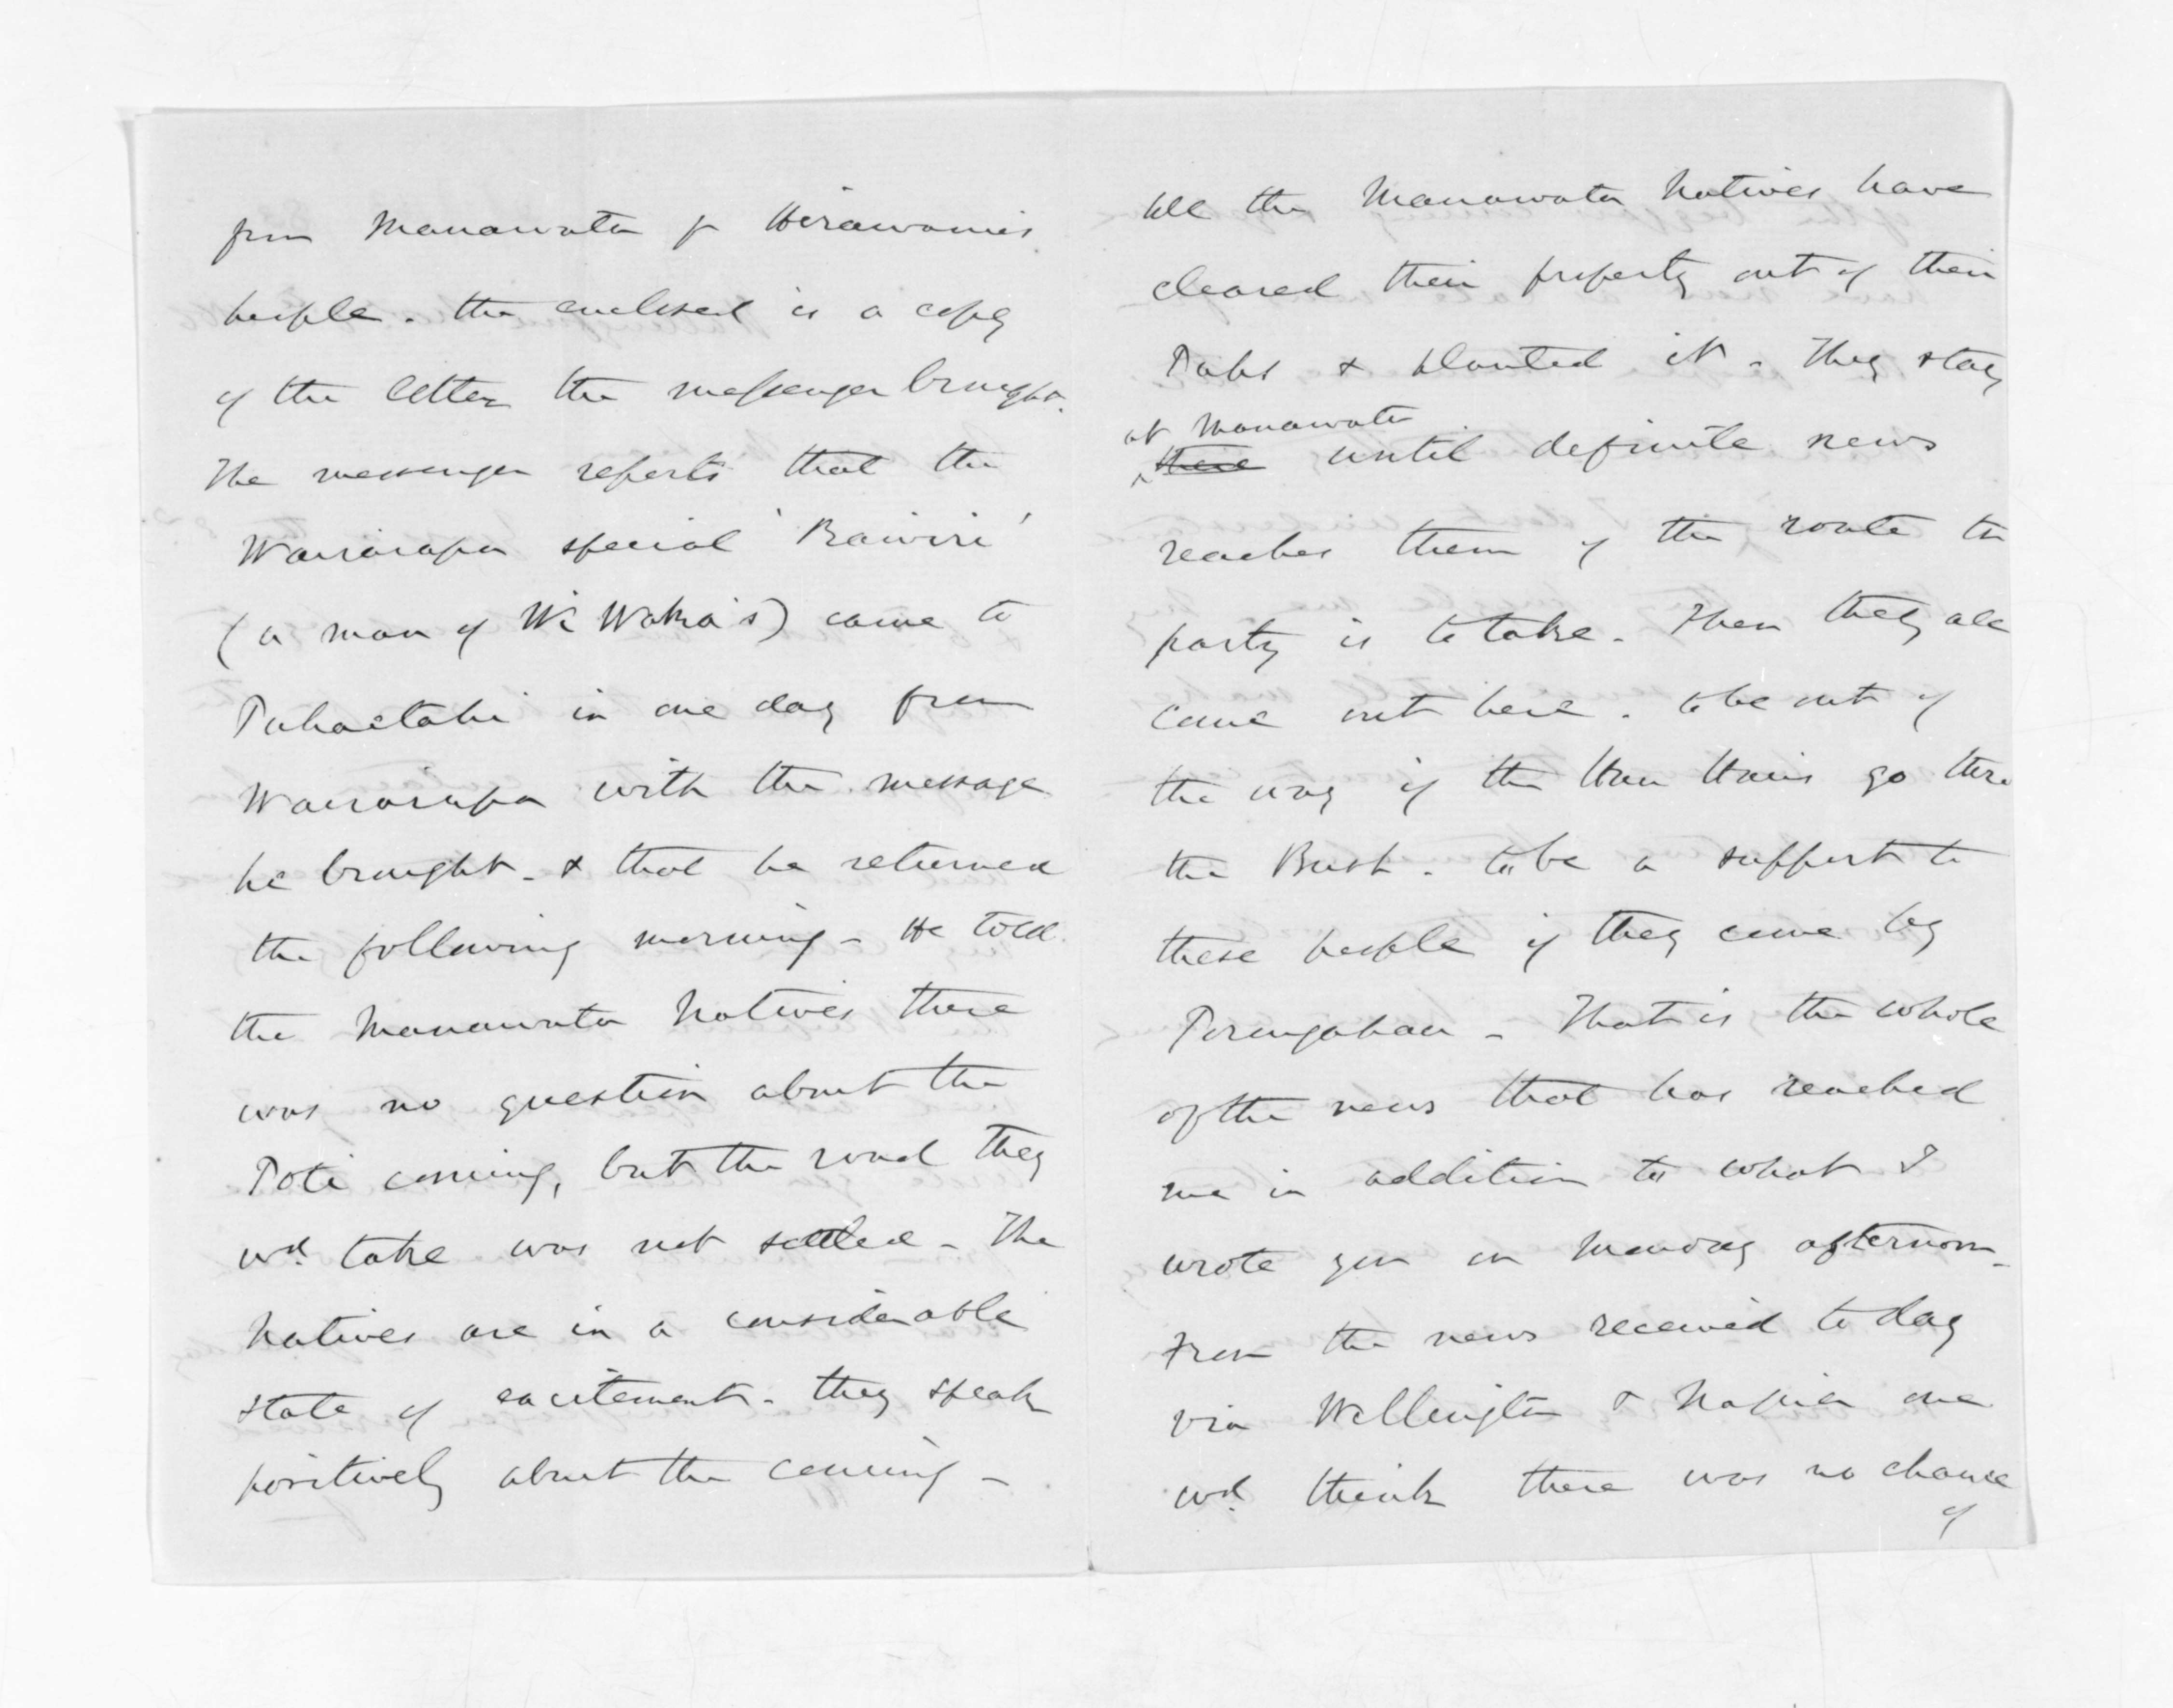 from Manawatu fr Hirawanis
people. the enclosed is a copy
of the letter the messenger brought.
The messenger reports that the
Wairarapa special 'Rawiri'
(a man of Wi Waka's) came to
Pahaetahi in one day from
Wairarapa with the message
he brought - & that he returned
the following morning - He told
the Manawatu Natives there
was no question about the
Poti coming, but the road they
wd. take was not settled - The
Natives are in a considerable
state of excitement - they speak
positively about the coming -
All the Manawatu Natives have
cleared their property out of their
Pahs & planted it - They stay
at Manawatu
there until definite news
reaches them of the route the
party is to take. Then they all
come out here. to be out of
the way if the Hau Haus go thro
the Bush. to be a support to
these people if they come by
Porangahau - That is the whole
of the news that has reached
me in addition to what I
wrote you on Monday afternoon -
From the news received to day
via Wellington & Napier one
wd. think there was no chance
of